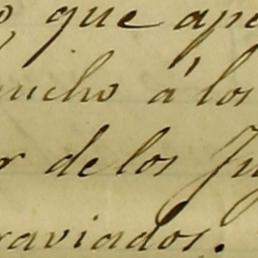 que ape
ucho á los
r de los Ju
raviados.